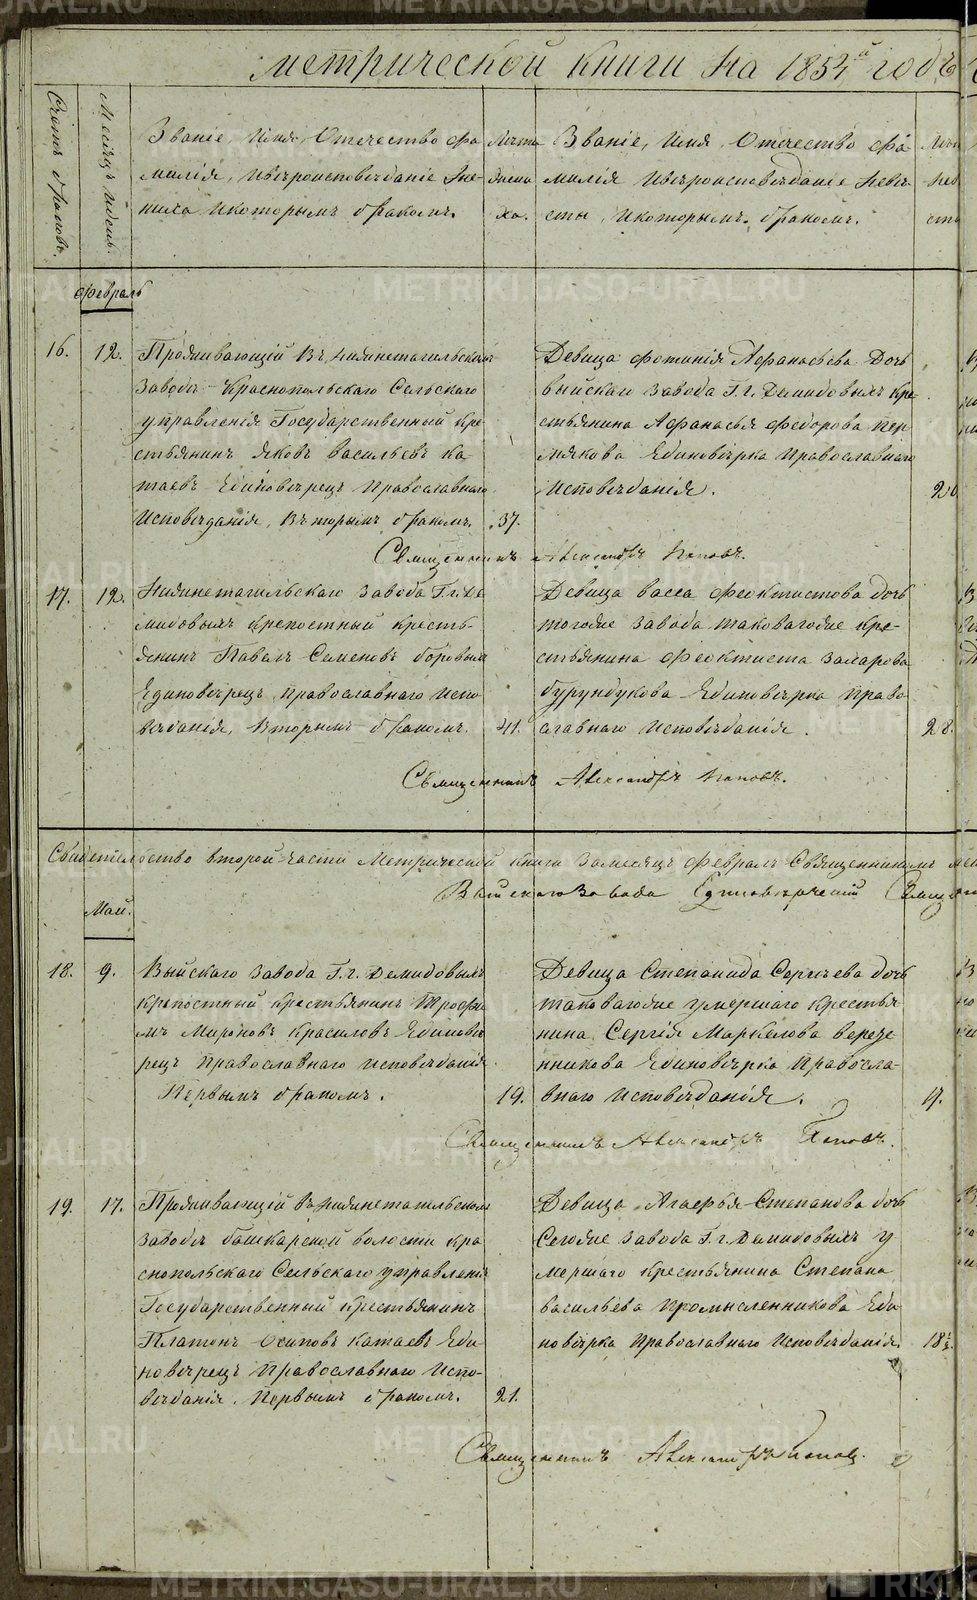 метрической книги на 1854й годъ
Счетъ браковъ.
Месяцъ и день.
Званіе, Имя, Отечество фа-
милія, Ивѣроисповѣданіе Же-
ниха Икоторымъ бракомъ.
Лѣта
жени
ха.
Званіе, Имя, Отечество фа-
милія Ивѣроисповѣданіе Невѣ-
сты, Икоторымъ бракомъ.
Лѣта
нев
сты
февраль
16.
12.
Проживающій Въ Нижнетагильскомъ
Заводѣ Краснопольскаго Сельскаго
управленія Государственный кре-
стьянинъ яковъ васильевъ ка-
таевъ Единовѣрецъ Православнаго
Исповѣданія, Вторымъ бракомъ.
37.
Девица фотинія Афанасьева Дочь
выйскаго завода Г. г. Демидовымъ кре
стьянина Афанасья Федорова пер
мякова Единовѣрка Православнаго
Исповѣданія.
20
Священникъ Александръ Поповъ.
17.
12.
Нижнетагильскаго Завода Г. г. Де
мидовымъ крепостный кресть-
янинъ Павелъ Семеновъ боровыхъ
Единовѣрецъ, православнаго испо
вѣданія, вторымъ бракомъ.
41.
Девица васса феоктистова дочь
тогоже завода таковагоже кре-
стьянина феоктиста Захарова
бурундукова Единовѣрка Право
славнаго исповѣданія.
28.
Священникъ Александръ Поповъ.
Свидетельство второй части Метрической книги замесяцъ февраль Священникомъ
Выйскаго Завода Единовѣрческій Священ
Май.
18.
9.
Выйскаго завода Г. г. Демидовымъ
крѣпостный крестьянинъ Трофи
мъ Мироновъ красиловъ Единовѣ
рецъ Православнаго исповѣданія
Первымъ бракомъ.
19.
Девица Степанида Сергѣева дочь
таковагоже умершаго крестья
нина Сергія Маркелова вереще
нникова Единовѣрка Правосла-
внаго Исповѣданія.
17.
Священникъ Александръ Поповъ.
19.
17.
Проживающій въ нижнетагильскомъ
заводѣ башкарской волости кра
снопольскаго Сельскаго управленія
Государственный крестьянинъ
Платонъ Осиповъ катаевъ Еди-
новѣрецъ Православнаго Испо-
вѣданія. Первымъ бракомъ.
21.
Девица Агафья Степанова дочь
Сегоже завода Г. г. Демидовымъ у
мершаго крестьянина Степана
васильева промысленникова Еди
новѣрка православнаго Исповѣданія
18½.
Священникъ Александръ Поповъ.
METRIKI.GASO-URAL.RU